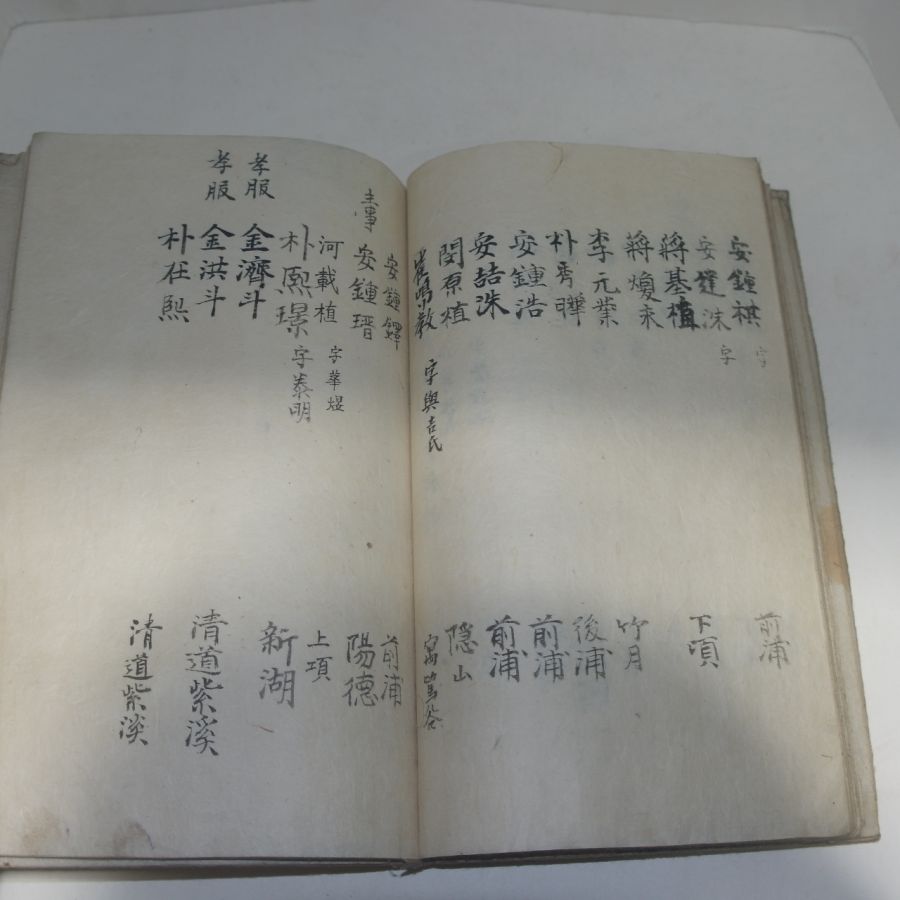 安鍾祺 字 前浦
安鍾洙 字
蔣基植 下項
蔣煥
李元業 竹月
朴秀曄 後浦
安鍾浩 前浦
安喆洙 前浦
閔原植 隱山
崔鳴教 字興吉氏 寓 谷
安鍾鐸 前浦
主事 安鍾瑨 陽德
河載植 字華煜 上項
朴熙璟 字泰明
孝服 金濟斗 新湖
孝服 金洪斗 清道紫溪
朴在熙 清道紫溪